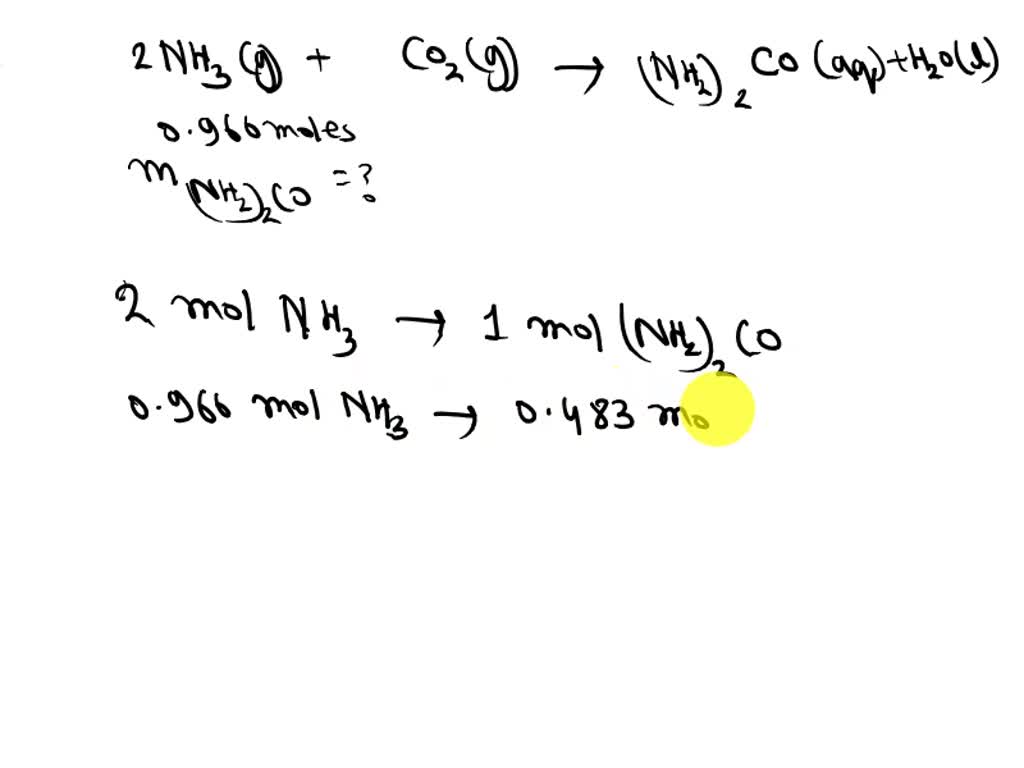 2NH₃(g) + CO₂(g) → (NH₂)₂CO(aq)+H₂O(l)
0.966 moles
m(NH₂)₂CO = ?
2 mol NH₃ → 1 mol (NH₂)₂CO
0.966 mol NH₃ → 0.483 mo